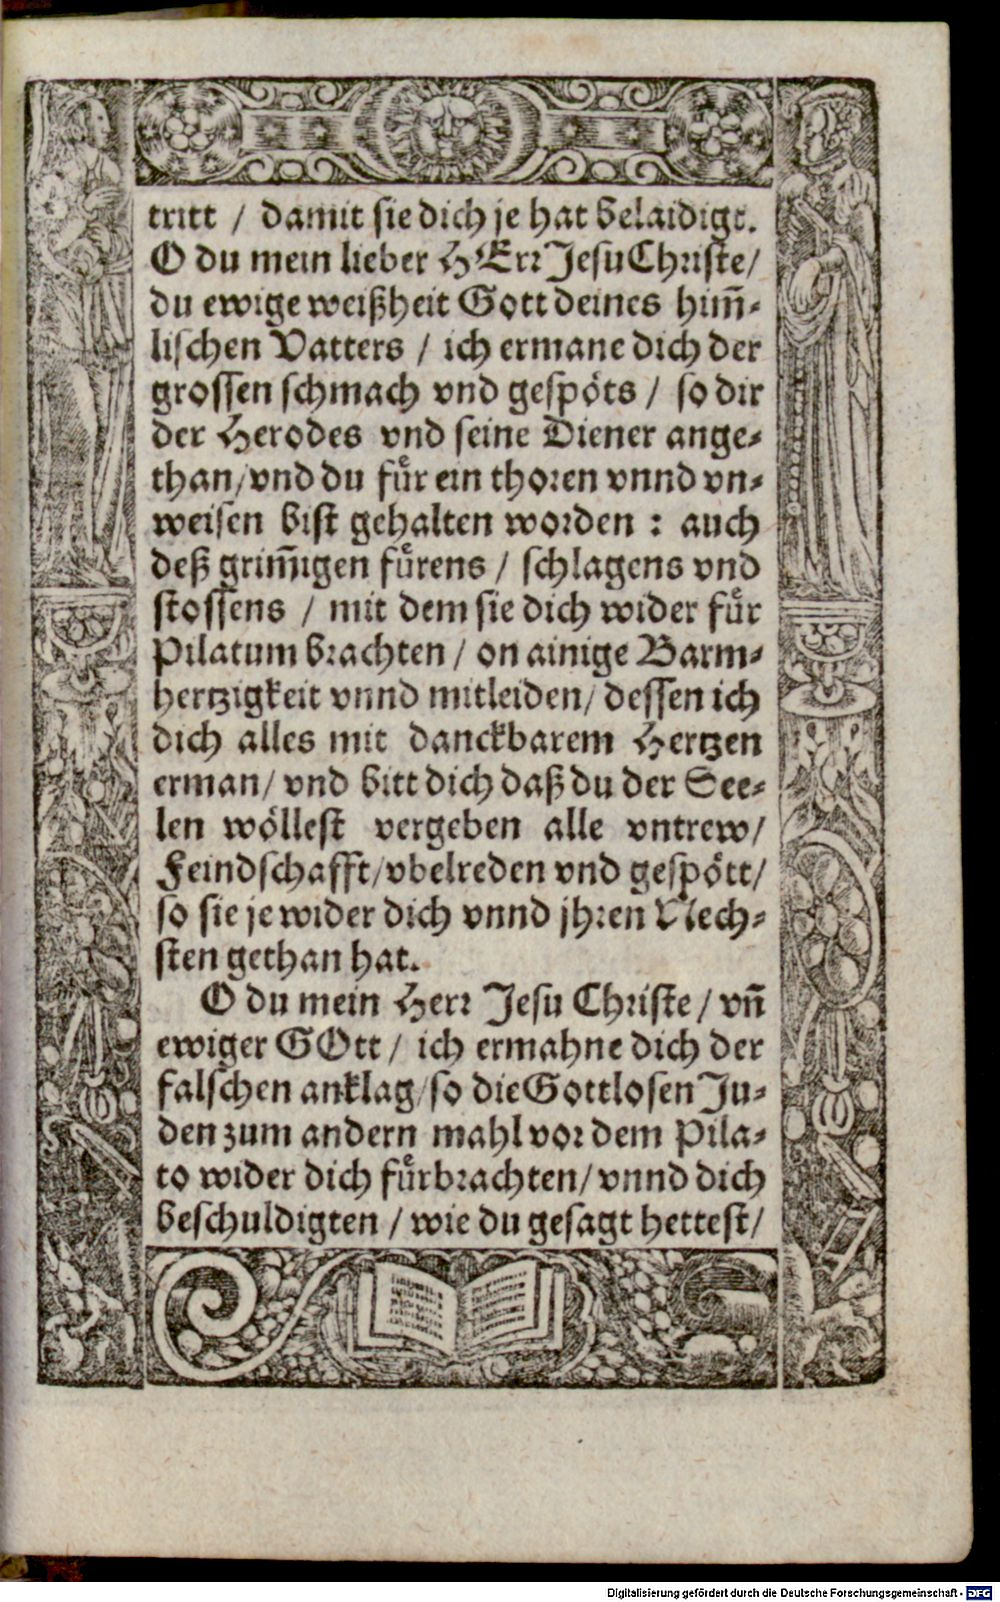 tritt / damit sie dich je hat belaidigt.
O du mein lieber HErr Jesu Christe/
du ewige weißheit Gott deines him̄-
lischen Vatters / ich ermane dich der
grossen schmach vnd gespöts / so dir
der Herodes vnd seine Diener ange-
than/vnd du für ein thoren vnnd vn-
weisen bist gehalten worden : auch
deß grim̄igen fürens / schlagens vnd
stossens / mit dem sie dich wider für
Pilatum brachten / on ainige Barm-
hertzigkeit vnnd mitleiden/ dessen ich
dich alles mit danckbarem Hertzen
erman/ vnd bitt dich daß du der See-
len wöllest vergeben alle vntrew/
Feindschafft/vbelreden vnd gespött/
so sie je wider dich vnnd jhren Nech-
sten gethan hat.
O du mein Herr Jesu Christe / vn̄
ewiger GOtt / ich ermahne dich der
falschen anklag/so die Gottlosen Ju-
den zum andern mahl vor dem Pila-
to wider dich fürbrachten/ vnnd dich
beschuldigten / wie du gesagt hettest/
Digitalisierung gefördert durch die Deutsche Forschungsgemeinschaft - DFG